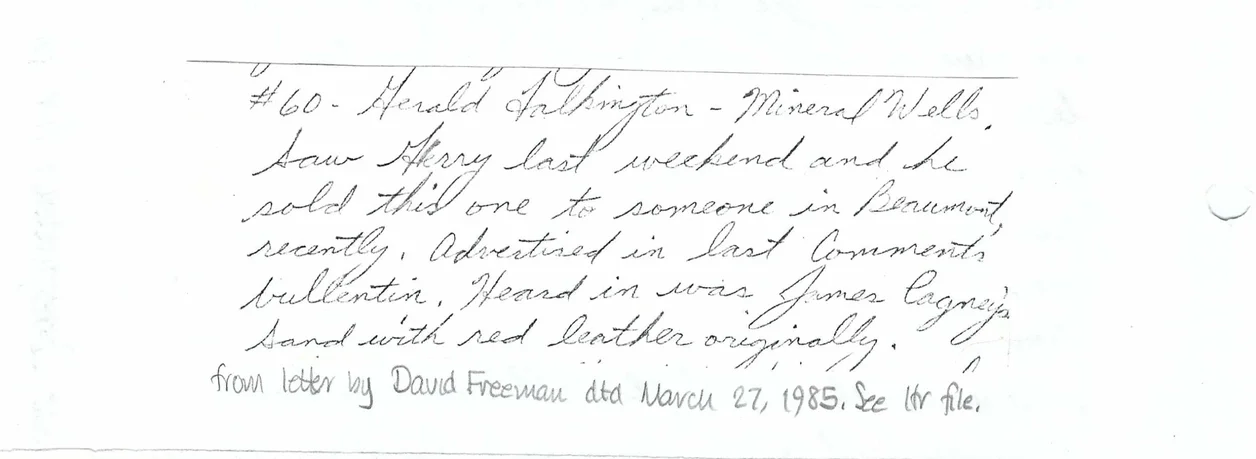 #60 - Gerald Falkington - Mineral Wells.
Saw Gerry last weekend and he
sold this one to someone in Beaumont,
recently. Advertised in last Comments
bullentin. Heard in was James Cagney's
Sand with red leather originally.
from letter by David Freeman dtd March 27, 1985. See ltr file.